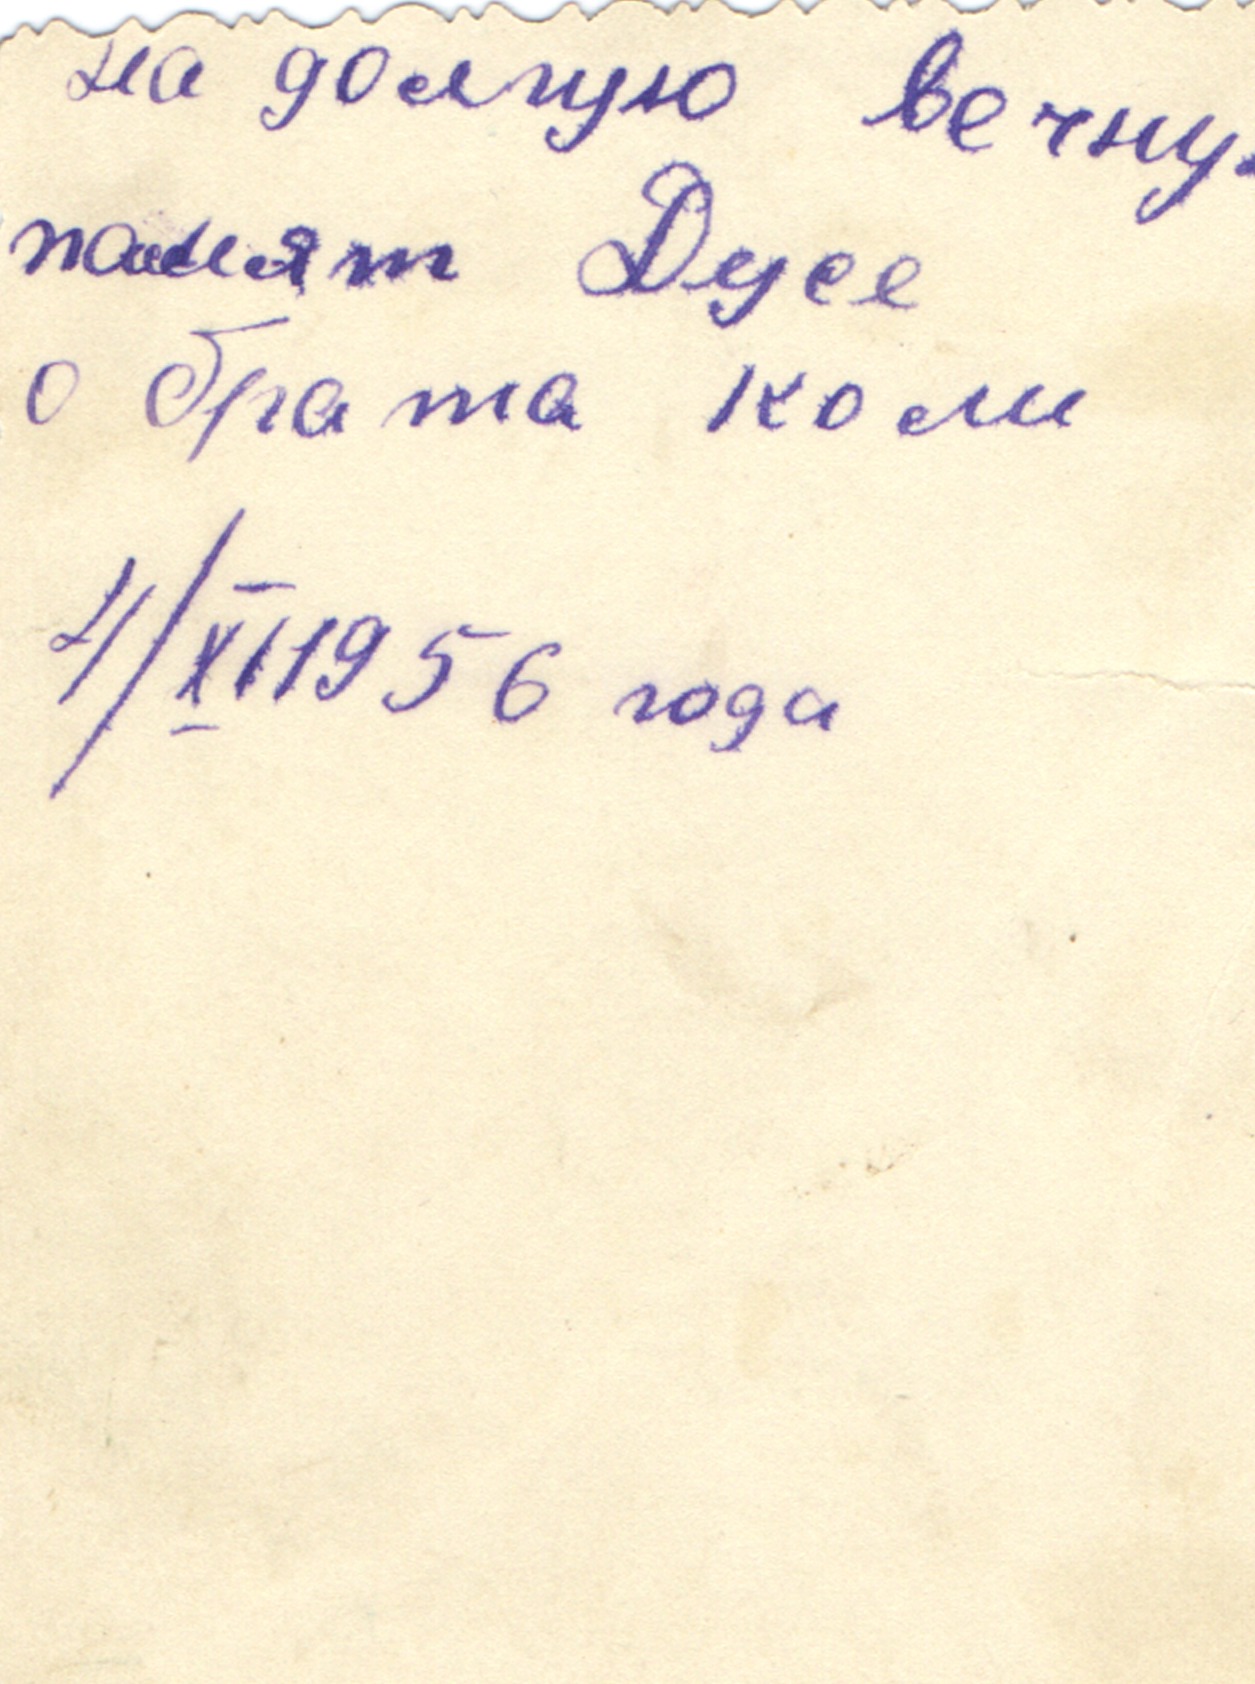 на долгую вечную
памят Дусе
о брата коли
4/XI 1956 года